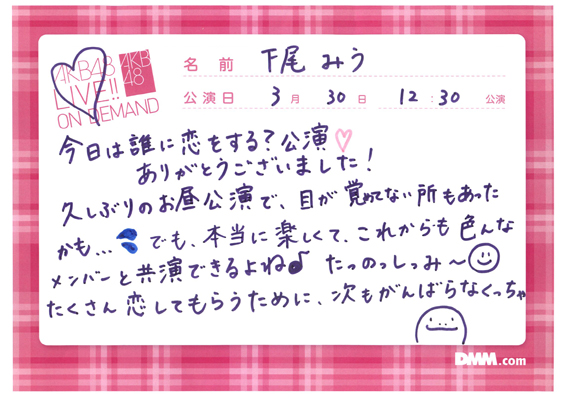 AKB48
LIVE!!
ON DEMAND
AKB
48
名前 下尾みう
公演日 3月30日 12:30公演
今日は誰に恋をする?公演♡
ありがとうございました!
久しぶりのお昼公演で、目が覚めてない所もあった
かも...💦でも、本当に楽しくて、これからも色んな
メンバーと共演できるよね♪たっのっしっみ〜☺
たくさん恋してもらうために、次もがんばらなくっちゃ
DMM.com